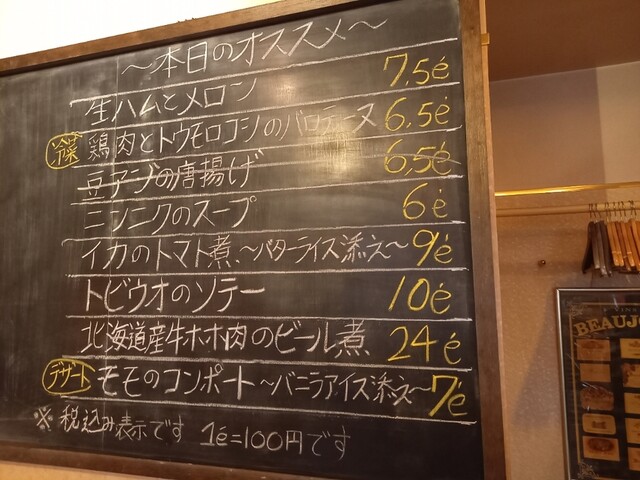 ～本日のオススメ～
生ハムとメロン 7,5é
冷菜 鶏肉とトウモロコシのバロティーヌ 6,5é
豆アジの唐揚げ 6,5é
ニンニクのスープ 6é
イカのトマト煮、～バターライス添え～ 9é
トビウオのソテー 10é
北海道産牛ホホ肉のビール煮 24é
デザート モモのコンポート～バニラアイス添え～ 7é
※税込み表示です 1é=100円です
BEAUJO